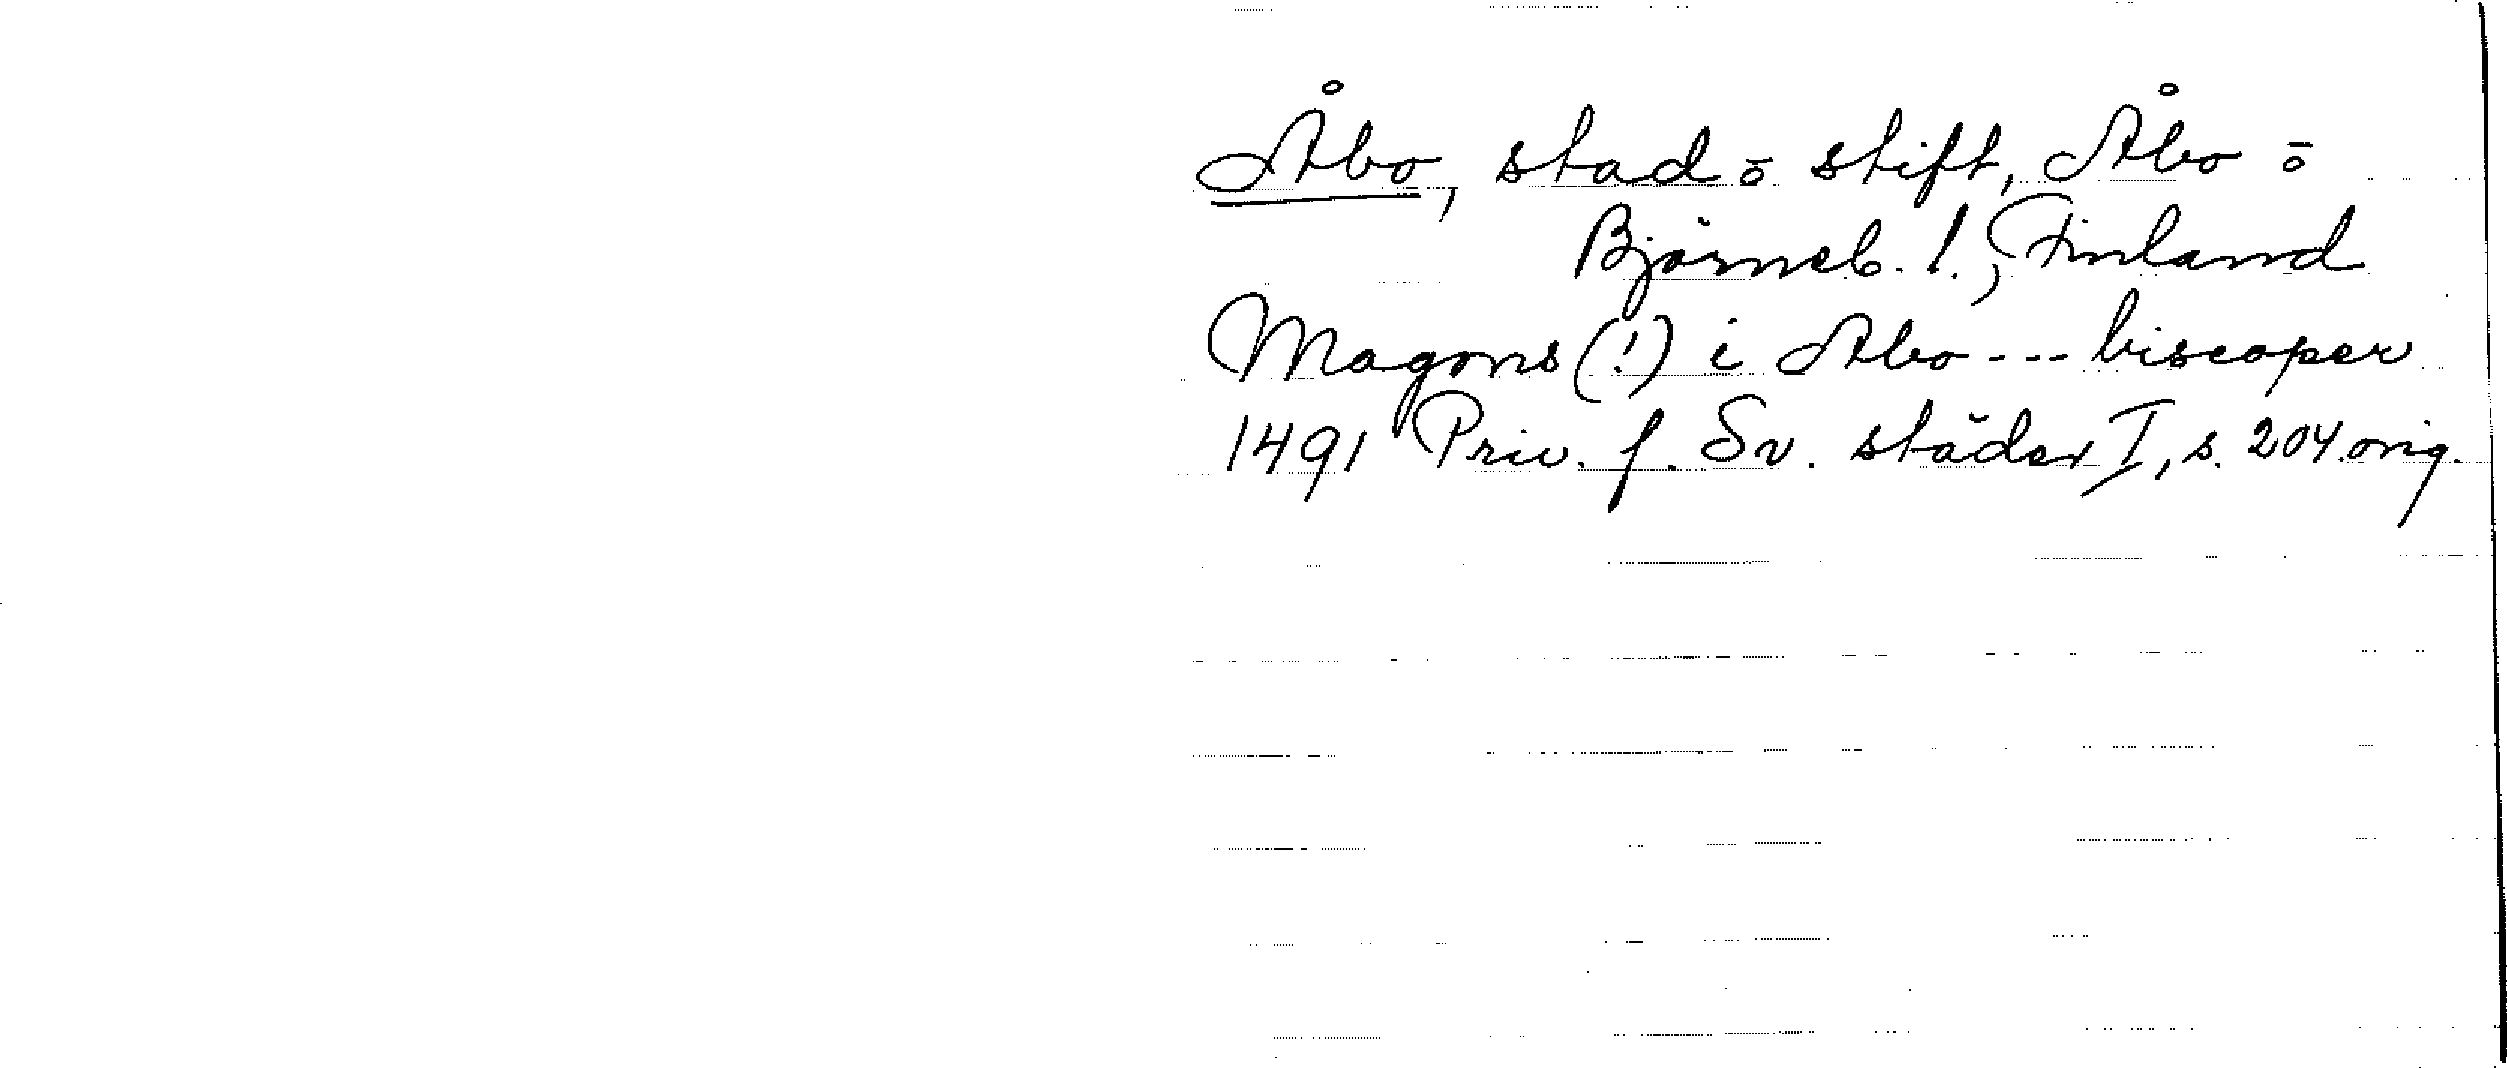 Åbo, stad o stift, Åbo o
Björneb. l., Finland
Magons (!) i Abo --- biscoper
1491 Priv. f. Sv. städer I, s. 204. orig.